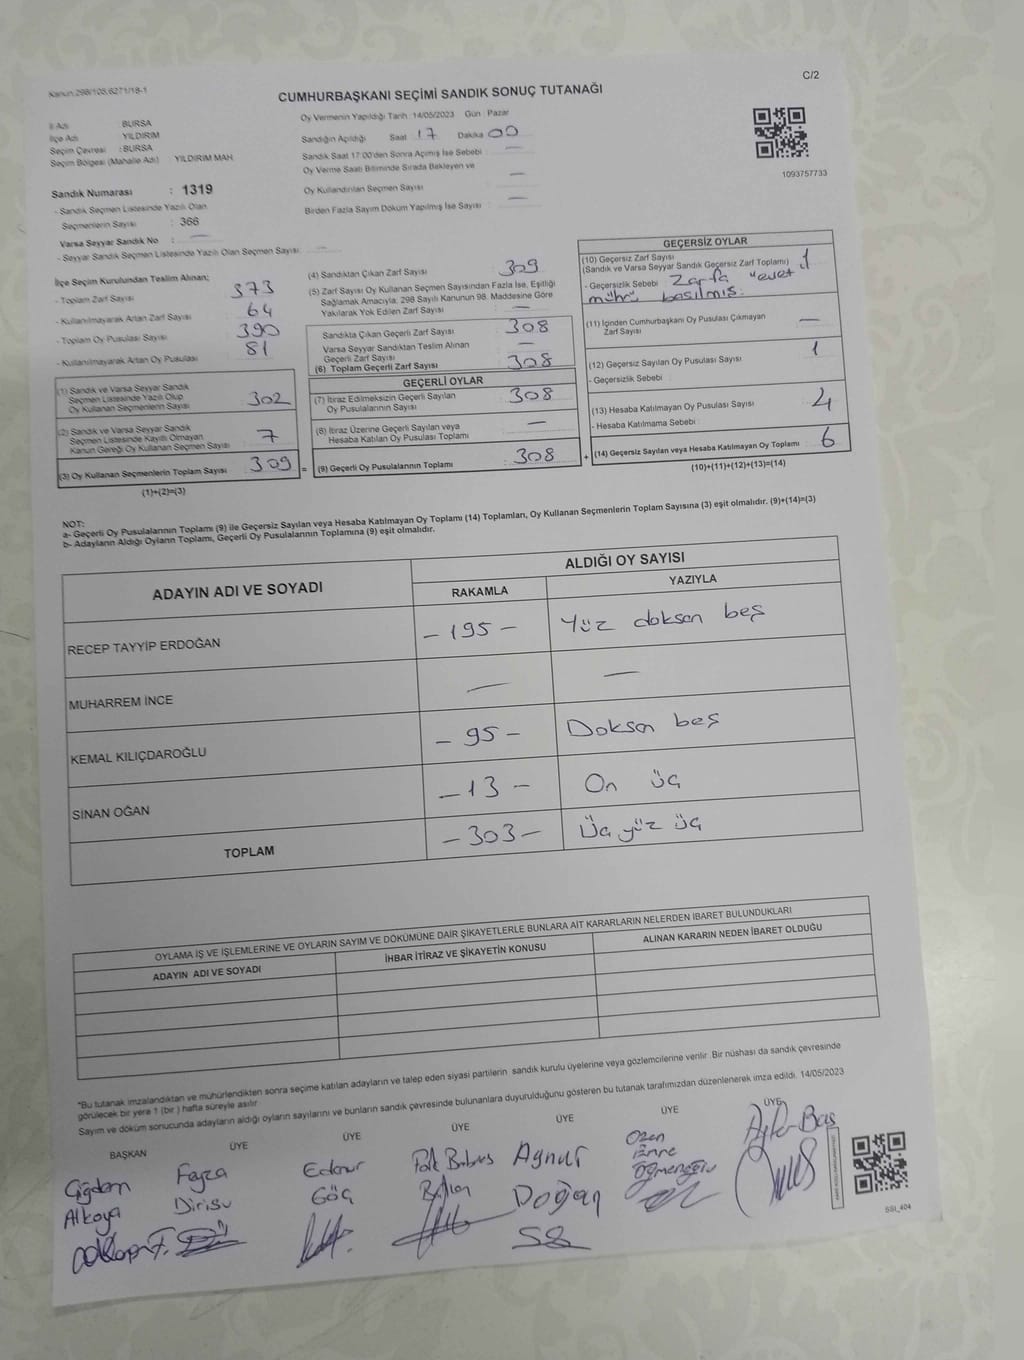 Kanun:298/105,6271/18-1
C/2
CUMHURBAŞKANI SEÇİMİ SANDIK SONUÇ TUTANAĞI
İl Adı : BURSA
İlçe Adı YILDIRIM
Seçim Çevresi : BURSA
Seçim Bölgesi (Mahalle Adı) YILDIRIM MAH.
Sandık Numarası : 1319
- Sandık Seçmen Listesinde Yazılı Olan
Seçmenlerin Sayısı : 366
Varsa Seyyar Sandık No : —
- Seyyar Sandık Seçmen Listesinde Yazılı Olan Seçmen Sayısı: —
Oy Vermenin Yapıldığı Tarih :14/05/2023 Gün : Pazar
Sandığın Açıldığı Saat 17 Dakika 00
Sandık Saat 17:00'den Sonra Açılmış İse Sebebi : —
Oy Verme Saati Bitiminde Sırada Bekleyen ve
Oy Kullandırılan Seçmen Sayısı —
Birden Fazla Sayım Döküm Yapılmış İse Sayısı : —
1093757733
İlçe Seçim Kurulundan Teslim Alınan;
- Toplam Zarf Sayısı 373
- Kullanılmayarak Artan Zarf Sayısı 64
- Toplam Oy Pusulası Sayısı 390
- Kullanılmayarak Artan Oy Pusulası 81
(1) Sandık ve Varsa Seyyar Sandık
Seçmen Listesinde Yazılı Olup
Oy Kullanan Seçmenlerin Sayısı 302
(2) Sandık ve Varsa Seyyar Sandık
Seçmen Listesinde Kayıtlı Olmayan
Kanun Gereği Oy Kullanan Seçmen Sayısı 7
(3) Oy Kullanan Seçmenlerin Toplam Sayısı 309
(1)+(2)=(3)
(4) Sandıktan Çıkan Zarf Sayısı 309
(5) Zarf Sayısı Oy Kullanan Seçmen Sayısından Fazla İse, Eşitliği
Sağlamak Amacıyla; 298 Sayılı Kanunun 98. Maddesine Göre
Yakılarak Yok Edilen Zarf Sayısı —
Sandıkta Çıkan Geçerli Zarf Sayısı 308
Varsa Seyyar Sandıktan Teslim Alınan
Geçerli Zarf Sayısı —
(6) Toplam Geçerli Zarf Sayısı 308
GEÇERLİ OYLAR
(7) İtiraz Edilmeksizin Geçerli Sayılan
Oy Pusulalarının Sayısı 308
(8) İtiraz Üzerine Geçerli Sayılan veya
Hesaba Katılan Oy Pusulası Toplamı —
= (9) Geçerli Oy Pusulalarının Toplamı 308
GEÇERSİZ OYLAR
(10) Geçersiz Zarf Sayısı
(Sandık ve Varsa Seyyar Sandık Geçersiz Zarf Toplamı) 1
- Geçersizlik Sebebi Zarfa "evet"
mührü basılmış.
(11) İçinden Cumhurbaşkanı Oy Pusulası Çıkmayan
Zarf Sayısı —
(12) Geçersiz Sayılan Oy Pusulası Sayısı 1
- Geçersizlik Sebebi :
(13) Hesaba Katılmayan Oy Pusulası Sayısı 4
- Hesaba Katılmama Sebebi :
+ (14) Geçersiz Sayılan veya Hesaba Katılmayan Oy Toplamı 6
(10)+(11)+(12)+(13)=(14)
NOT:
a- Geçerli Oy Pusulalarının Toplamı (9) ile Geçersiz Sayılan veya Hesaba Katılmayan Oy Toplamı (14) Toplamları, Oy Kullanan Seçmenlerin Toplam Sayısına (3) eşit olmalıdır. (9)+(14)=(3)
b- Adayların Aldığı Oyların Toplamı, Geçerli Oy Pusulalarının Toplamına (9) eşit olmalıdır.
ADAYIN ADI VE SOYADI
ALDIĞI OY SAYISI
RAKAMLA YAZIYLA
RECEP TAYYİP ERDOĞAN - 195 - Yüz doksan beş
MUHARREM İNCE — —
KEMAL KILIÇDAROĞLU - 95 - Doksan beş
SİNAN OĞAN - 13 - On üç
TOPLAM - 303 - Üç yüz üç
OYLAMA İŞ VE İŞLEMLERİNE VE OYLARIN SAYIM VE DÖKÜMÜNE DAİR ŞİKAYETLERLE BUNLARA AİT KARARLARIN NELERDEN İBARET BULUNDUKLARI
ADAYIN ADI VE SOYADI İHBAR İTİRAZ VE ŞİKAYETİN KONUSU ALINAN KARARIN NEDEN İBARET OLDUĞU
*Bu tutanak imzalandıktan ve mühürlendikten sonra seçime katılan adayların ve talep eden siyasi partilerin sandık kurulu üyelerine veya gözlemcilerine verilir. Bir nüshası da sandık çevresinde
görülecek bir yere 1 (bir ) hafta süreyle asılır.
Sayım ve döküm sonucunda adayların aldığı oyların sayılarını ve bunların sandık çevresinde bulunanlara duyurulduğunu gösteren bu tutanak tarafımızdan düzenlenerek imza edildi. 14/05/2023
BAŞKAN ÜYE ÜYE ÜYE ÜYE ÜYE ÜYE
Çiğdem
Alkaya
Feyza
Dirisu
Edanur
Göç
Aynur
Doğan
Ozen
Emre
Öğmenoğlu
SSI_404